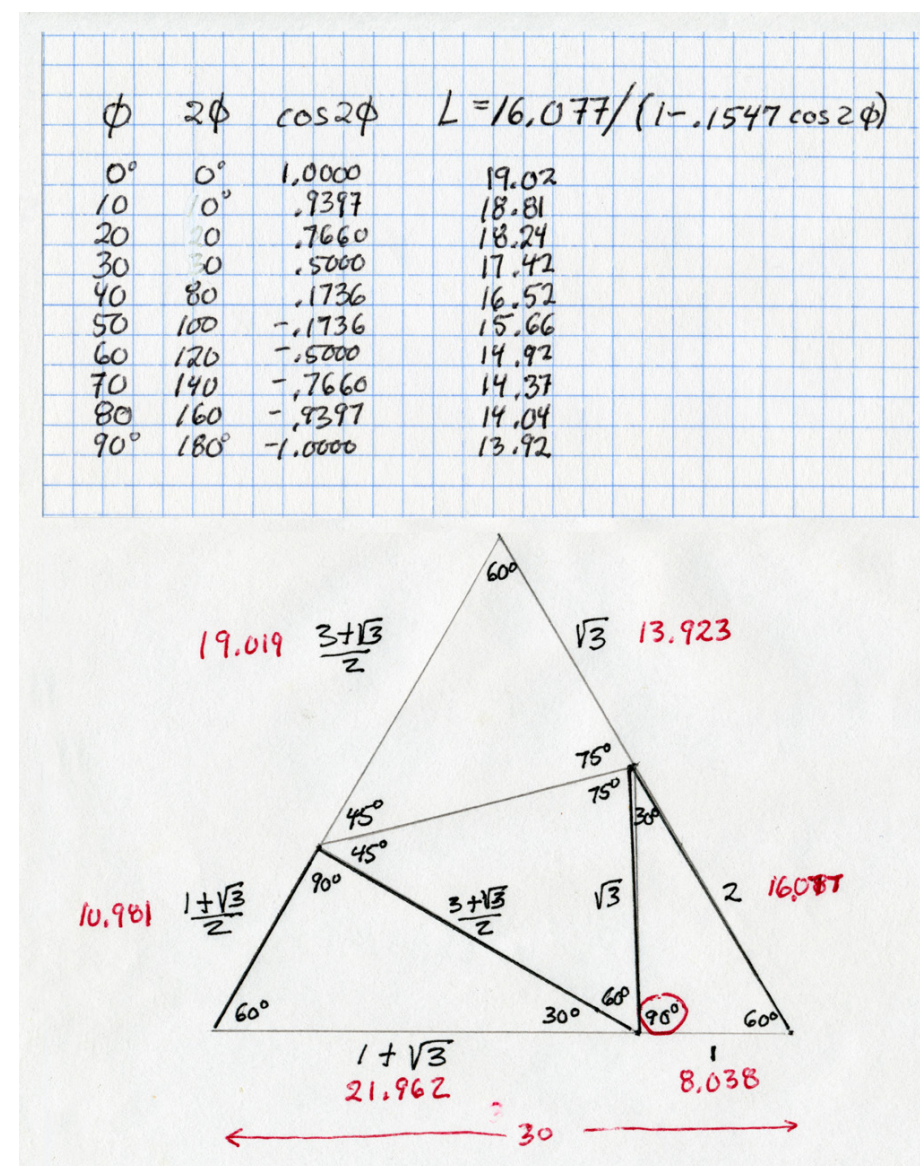 ϕ 2ϕ cos2ϕ L = 16.077/(1-.1547 cos2ϕ)
0° 0° 1.0000 19.02
10 0° .9397 18.81
20 0 .7660 18.24
30 0 .5000 17.42
40 80 .1736 16.52
50 100 -.1736 15.66
60 120 -.5000 14.92
70 140 -.7660 14.37
80 160 -.9397 14.04
90° 180° -1.0000 13.92
60°
19.019 3+√3/2 √3 13.923
75°
75°
45° 30°
45°
90°
10.981 1+√3/2 3+√3/2 √3 2
60° 30° 60° 90° 60°
1+√3 1
21.962 8.038
30